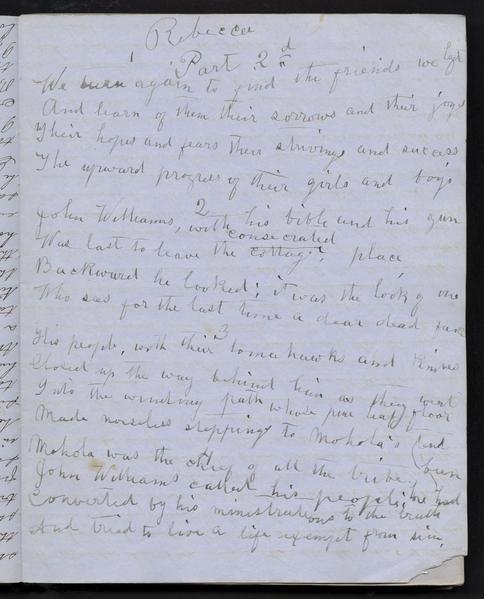 Rebecca
Part 2d
1
We turn again to find the friends we left
And learn of them their sorrows and their joys
Their hopes and fears their strivings and success
The upward progress of their girls and boys
2
John Williams, with his bible and his gun
consecrated
Was last to leave the cottage place,
Backward he looked; it was the look of one
Who sees for the last time a dear dead face
3
His people, with their tomahawks and knives
Closed up the way behind him as they went
Into the winding path whose pine leaf floor
Made noiseless stepping to Mokola's tent
4
Mokola was the chief of all the tribe,
John Williams called his people; he had been
Converted by his ministrations to the truth
And tried to live a life exempt from sin,